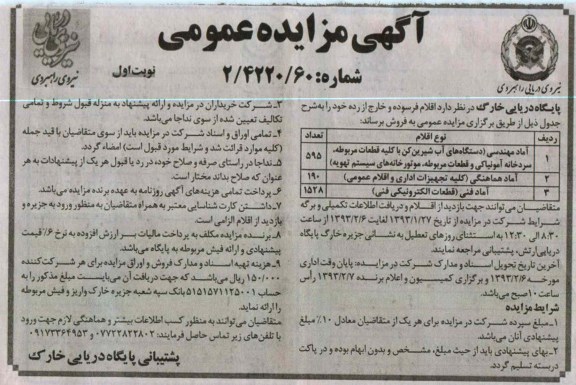 آگهی مزایده عمومی
شماره: ۲/۴۲۲۰/۶۰
نوبت اول
نیروی دریایی راهبردی
نیروی راهبردی
پایگاه دریایی خارک در نظر دارد اقلام فرسوده و خارج از رده خود را به شرح
جدول ذیل از طریق برگزاری مزایده عمومی به فروش برساند:
ردیف نوع اقلام تعداد
۱ آماد مهندسی (دستگاه‌های آب شیرین کن با کلیه قطعات مربوطه، ۵۹۵
سردخانه آمونیاکی و قطعات مربوطه، موتورخانه‌های سیستم تهویه)
۲ آماد هماهنگی (کلیه تجهیزات اداری و اقلام عمومی) ۱۹۰
۳ آماد فنی (قطعات الکترونیکی فنی) ۱۵۲۸
متقاضیان می‌توانند جهت بازدید از اقلام و دریافت اطلاعات تکمیلی و برگه
شرایط شرکت در مزایده از تاریخ ۱۳۹۳/۱/۲۷ لغایت ۱۳۹۳/۲/۶ از ساعت
۸:۳۰ الی ۱۲:۳۰ به استثنای روزهای تعطیل به نشانی جزیره خارگ پایگاه
دریایی ارتش، پشتیبانی مراجعه نمایند.
آخرین تاریخ تحویل اسناد و مدارک شرکت در مزایده: پایان وقت اداری
مورخه ۱۳۹۳/۲/۶ و برگزاری کمیسیون و اعلام برنده ۱۳۹۳/۲/۷ رأس
ساعت ۱۰ صبح می‌باشد.
شرایط مزایده
۱ـ مبلغ سپرده شرکت در مزایده برای هر یک از متقاضیان معادل ۱۰٪ مبلغ
پیشنهادی آنان می‌باشد.
۲ـ بهای پیشنهادی باید از حیث مبلغ، مشخص و بدون ابهام بوده و در پاکت
دربسته تسلیم گردد.
۳ـ شرکت خریداران در مزایده و ارائه پیشنهاد به منزله قبول شروط و تمامی
تکالیف تعیین شده از سوی نداجا می‌باشد.
۴ـ تمامی اوراق و اسناد شرکت در مزایده باید از سوی متقاضیان با قید جمله
(کلیه موارد قرائت شد و شرایط مورد قبول است) امضاء گردد.
۵ـ نداجا در راستای صرفه و صلاح خود، در رد یا قبول هر یک از پیشنهادات به هر
عنوان که صلاح بداند مختار است.
۶ـ پرداخت تمامی هزینه‌های آگهی روزنامه به عهده برنده مزایده می‌باشد.
۷ـ داشتن کارت شناسایی معتبر به همراه متقاضیان به منظور ورود به جزیره و
بازدید از اقلام الزامی است.
۸ـ برنده مزایده مکلف به پرداخت مالیات بر ارزش افزوده به نرخ ۶٪ قیمت
پیشنهادی و ارائه فیش مربوطه به پایگاه می‌باشد.
۹ـ هزینه تهیه اسناد و مدارک فروش و اوراق مزایده برای هر شرکت‌کننده
۱۵۰/۰۰۰ ریال می‌باشد که جهت دریافت آن می‌بایست مبلغ مذکور را به
حساب ۵۱۵۱۵۷۱۱۲۵۰۰۱ بانک سپه شعبه جزیره خارک واریز و فیش مربوطه
را ارائه نماید.
متقاضیان می‌توانند به منظور کسب اطلاعات بیشتر و هماهنگی لازم جهت ورود
با تلفن‌های زیر تماس حاصل فرمایند: ۰۷۷۲۳۸۲۲۸۰۲ و ۰۹۱۷۳۳۶۴۹۵۳
پشتیبانی پایگاه دریایی خارک